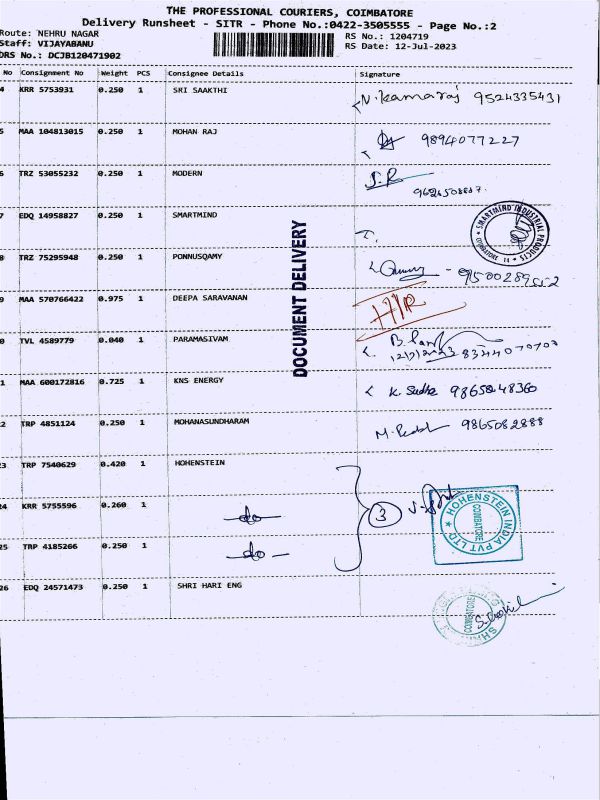 THE PROFESSIONAL COURIERS, COIMBATORE
Delivery Runsheet - SITR - Phone No.:0422-3505555 - Page No.:2
Route: NEHRU NAGAR
RS No.: 1204719
Staff: VIJAYABANU
RS Date: 12-Jul-2023
DRS No.: DCJB120471902
No Consignment No Weight PCS Consignee Details Signature
4 KRR 5753931 0.250 1 SRI SAAKTHI N.Kamaraj 9524335431
5 MAA 104813015 0.250 1 MOHAN RAJ 9894077227
6 TRZ 53055232 0.250 1 MODERN S.R
7 EDQ 14958827 0.250 1 SMARTMIND
SMARTMIND INDUSTRIAL PRODUCTS
COIMBATORE
8 TRZ 75295948 0.250 1 PONNUSQAMY
DOCUMENT DELIVERY
9 MAA 570766422 0.975 1 DEEPA SARAVANAN
0 TVL 4589779 0.040 1 PARAMASIVAM 8344070707
1 MAA 600172816 0.725 1 KNS ENERGY K. Sudha 9865848360
2 TRP 4851124 0.250 1 MOHANASUNDHARAM 9865082888
23 TRP 7540629 0.420 1 HOHENSTEIN
24 KRR 5755596 0.260 1 do 3
HOHENSTEIN INDIA PVT LTD
COIMBATORE
25 TRP 4185266 0.250 1 do
26 EDQ 24571473 0.250 1 SHRI HARI ENG
COIMBATORE